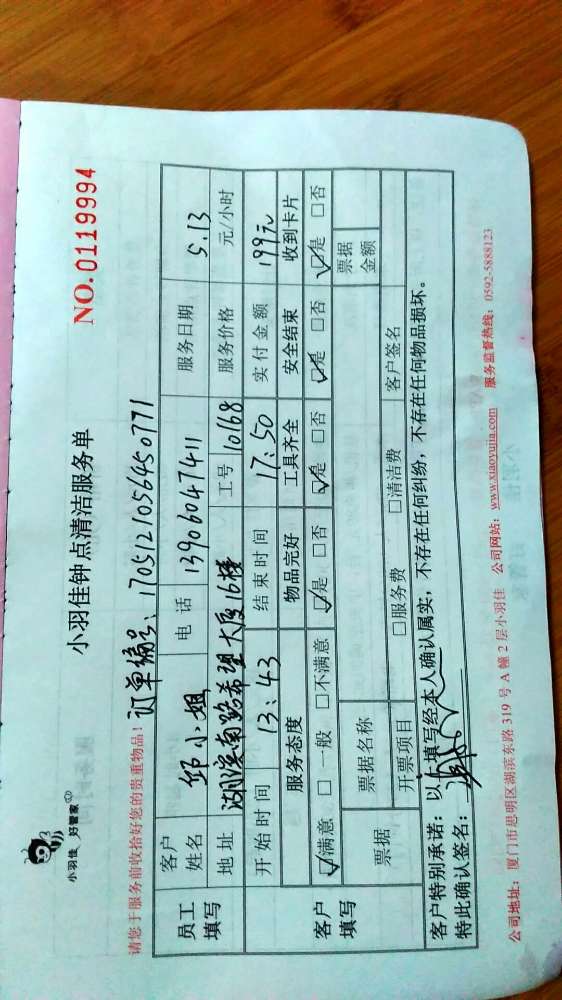 小羽佳 好管家
小羽佳钟点清洁服务单
NO.0119994
请您于服务前收拾好您的贵重物品！ 订单编号：170512105645077 1
员工填写 客户姓名 邱小姐 电话 13906047411 服务日期 5.13
地址 湖滨南路希望大厦16楼 工号 10168 服务价格 元/小时
开始时间 13:43 结束时间 17:50 实付金额 199元
客户填写 服务态度 物品完好 工具齐全 安全结束 收到卡片
☑满意 □一般 □不满意 ☑是 □否 ☑是 □否 ☑是 □否 ☑是 □否
票据 票据名称 票据金额
开票项目 □服务费 □清洁费 客户签名
客户特别承诺：以上填写经本人确认属实，不存在任何纠纷，不存在任何物品损坏。
特此确认签名：
公司地址：厦门市思明区湖滨东路319号A幢2层小羽佳 公司网站：www.xiaoyujia.com 服务监督热线：0592-5888123